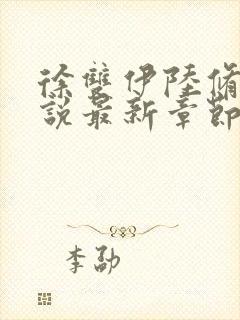 徐雙伊陸脩
說最新章節
李劭